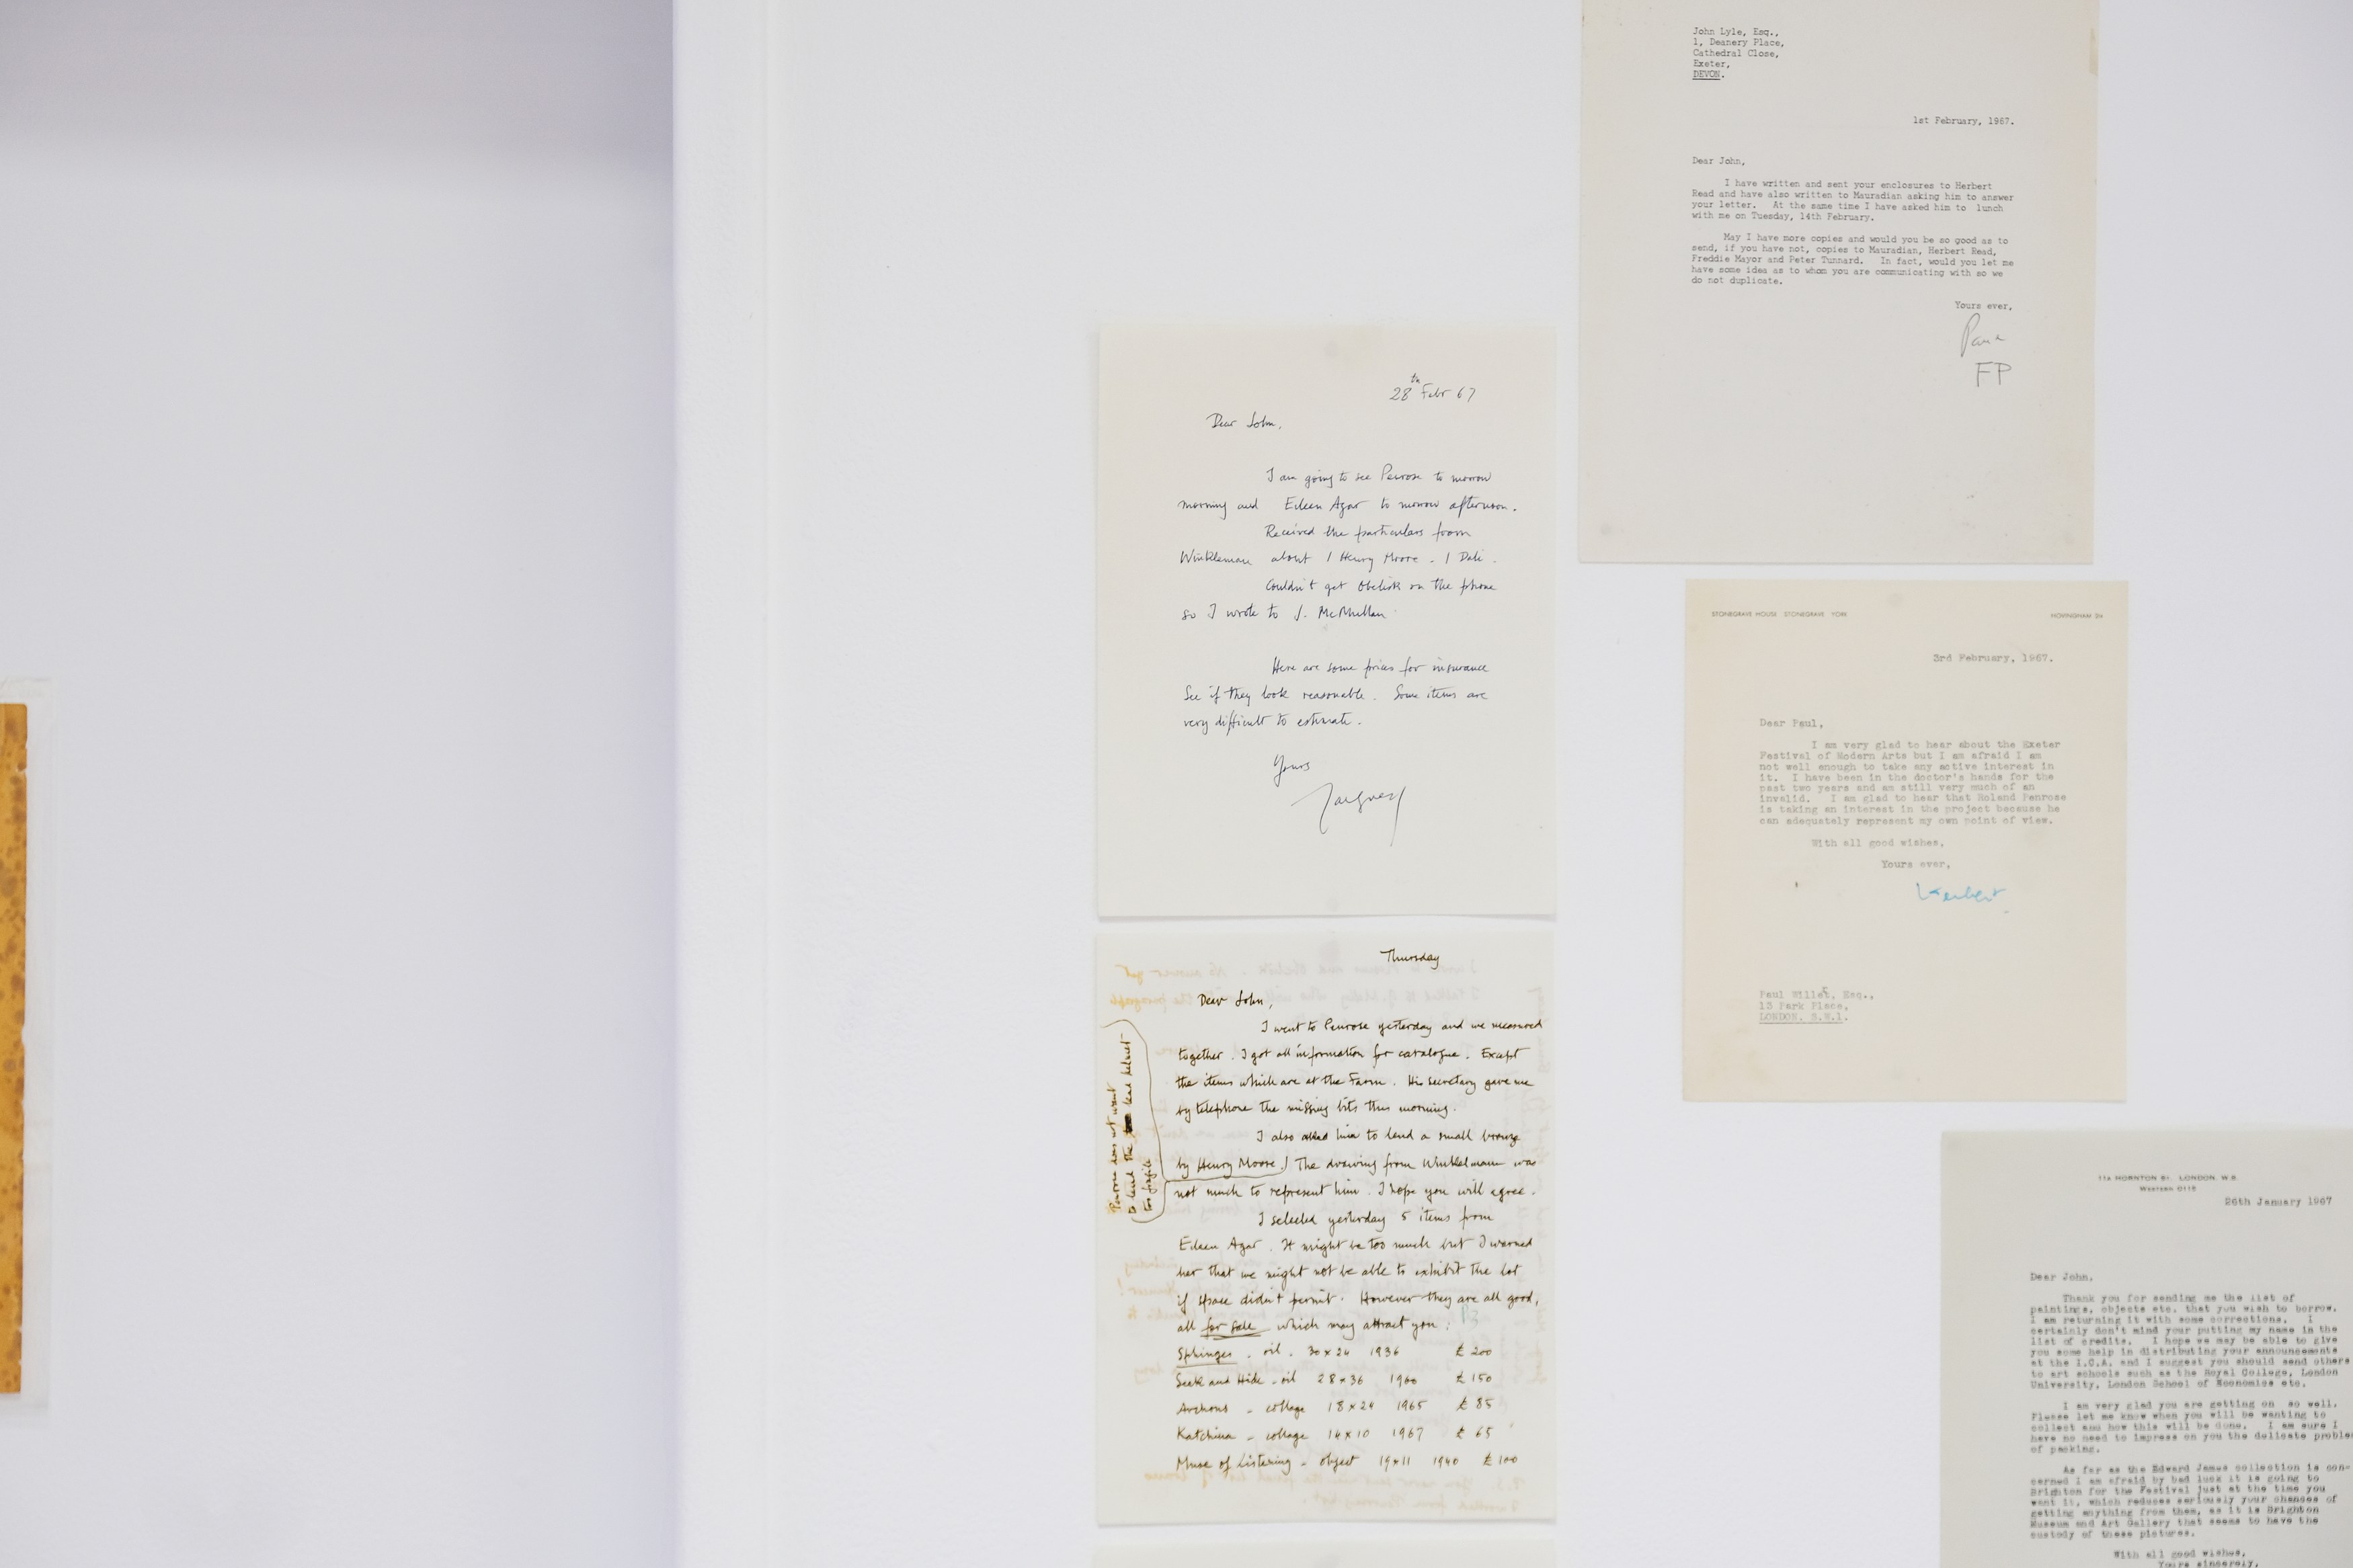 John Lyle, Esq.,
1, Deanery Place,
Cathedral Close,
Exeter,
DEVON.
1st February, 1967.
Dear John,
I have written and sent your enclosures to Herbert
Read and have also written to Mauradian asking him to answer
your letter. At the same time I have asked him to lunch
with me on Tuesday, 14th February.
May I have more copies and would you be so good as to
send, if you have not, copies to Mauradian, Herbert Read,
Freddie Mayor and Peter Tunnard. In fact, would you let me
have some idea as to whom you are communicating with so we
do not duplicate.
Yours ever,
FP
28th Febr 67
Dear John,
I am going to see Penrose to morrow
morning and Eileen Agar to morrow afternoon.
Received the particulars from
Winkleman about 1 Henry Moore - 1 Dali.
Couldn't get Obelisk on the phone
so I wrote to J. McMullan
Here are some prices for insurance
See if they look reasonable. Some items are
very difficult to estimate.
Yours
Jacques
STONEGRAVE HOUSE STONEGRAVE YORK
HOVINGHAM
3rd February, 1967.
Dear Paul,
I am very glad to hear about the Exeter
Festival of Modern Arts but I am afraid I am
not well enough to take any active interest in
it. I have been in the doctor's hands for the
past two years and am still very much of an
invalid. I am glad to hear that Roland Penrose
is taking an interest in the project because he
can adequately represent my own point of view.
With all good wishes,
Yours ever,
Herbert.
Paul Willet, Esq.,
15 Park Place,
LONDON, S.W.1.
Thursday
Dear John,
I went to Penrose yesterday and we measured
together. I got all information for catalogue. Except
the items which are at the Farm. His secretary gave me
by telephone the missing bits this morning.
I also asked him to lend a small bronze
by Henry Moore. The drawing from Winkelmann was
not much to represent him. I hope you will agree.
I selected yesterday 5 items from
Eileen Agar. It might be too much but I warned
her that we might not be able to exhibit the lot
if space didn't permit. However they are all good,
all for sale which may attract you:
Sphinges - oil. 30x24 1936 £ 200
Seek and Hide - oil 28x36 1960 £ 150
Archons - collage 18x24 1965 £ 85
Katchina - collage 14x10 1967 £ 65
Muse of Listening - object 19x11 1940 £ 100
Penrose does not want
to lend the lead helmet
too fragile
11A HORNTON ST. LONDON. W.8.
Western 0115
26th January 1967
Dear John,
Thank you for sending me the list of
paintings, objects etc. that you wish to borrow.
I am returning it with some corrections. I
certainly don't mind your putting my name in the
list of credits. I hope we may be able to give
you some help in distributing your announcements
at the I.C.A. and I suggest you should send others
to art schools such as the Royal College, London
University, London School of Economics etc.
I am very glad you are getting on so well.
Please let me know when you will be wanting to
collect and how this will be done. I am sure I
have no need to impress on you the delicate proble
of packing.
As far as the Edward James collection is con-
cerned I am afraid by bad luck it is going to
Brighton for the Festival just at the time you
want it, which reduces seriously your chances of
getting anything from them, as it is Brighton
Museum and Art Gallery that seems to have the
custody of these pictures.
With all good wishes,
Yours sincerely,